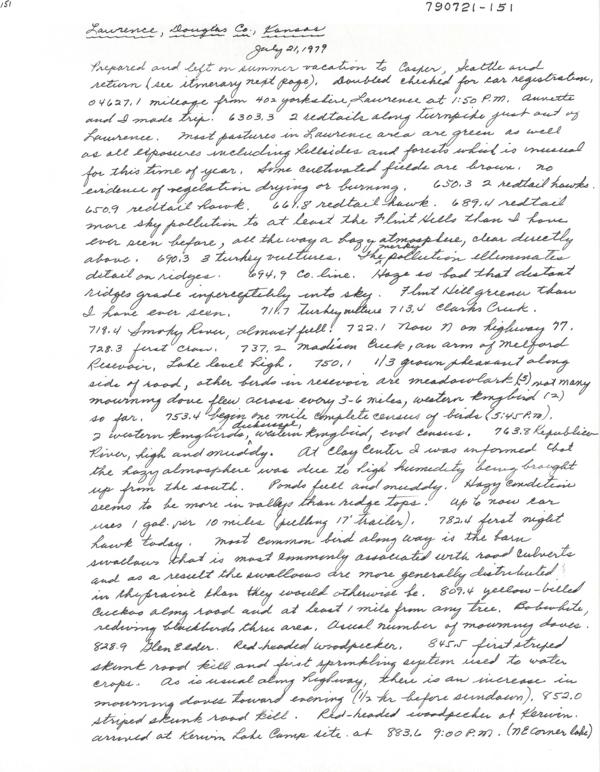 151
790721-151
Lawrence, Douglas Co., Kansas
July 21, 1979
Prepared and left on summer vacation to Casper, Seattle and
return (see itinerary next page). Doubled checked for car registration,
04627.1 mileage from 402 Yorkshire, Lawrence at 1:50 P.M. Annette
and I made trip. 6303.3 2 redtails along turnpike just out of
Lawrence. Most pastures in Lawrence area are green as well
as all exposures including hillsides and forests which is unusual
for this time of year. Some cultivated fields are brown. no
evidence of vegetation drying or burning. 650.3 2 redtail hawks.
650.9 redtail hawk. 661.8 redtail hawk. 689.4 redtail
more sky pollution to at least the Flint Hills than I have
ever seen before, all the way a hazy atmosphere, clear directly
above. 690.3 3 turkey vultures. The murky pollution eliminates
detail on ridges. 694.9 Co. line. Haze so bad that distant
ridges grade imperceptibly into sky. Flint Hill greener than
I have ever seen. 711.7 Turkey vultures 713.4 Clarks Creek.
719.4 Smoky River, almost full. 722.1 Now N on highway 77.
728.3 first crow. 737.2 Madison Creek, an arm of Melford
Resevoir, Lake level high. 750.1 1/3 grown pheasant along
side of road, other birds in resevoir are meadowlark (3) not many
mourning dove flew across every 3-6 miles, western kingbird (2)
so far. 753.4 begin one mile complete census of birds (5:45 P.M.).
2 western kingbirds, dickcissel, western kingbird, end census. 763.8 Republican
River, high and muddy. At Clay Center I was informed that
the hazy atmosphere was due to high humidity being brought
up from the south. Ponds full and muddy. Hazy condition
seems to be more in valleys than ridge tops. Up to now car
uses 1 gal. per 10 miles (pulling 17' trailer). 782.4 first night
hawk today. Most common bird along way is the barn
swallows that is most commonly associated with road culverts
and as a result the swallows are more generally distributed
in the prairie than they would otherwise be. 809.4 yellow-billed
cuckoo along road and at least 1 mile from any tree. Bobwhite,
redwing blackbirds thru area. Usual number of mourning doves.
828.9 Glen Elder. Red-headed woodpecker. 845.5 first striped
skunk road kill and first sprinkling system used to water
crops. As is usual along highway, there is an increase in
mourning doves toward evening (1/2 hr before sundown). 852.0
striped skunk road kill. Red-headed woodpecker at Kerwin.
arrived at Kerwin Lake Camp site at 883.6 9:00 P.M. (NE corner lake)